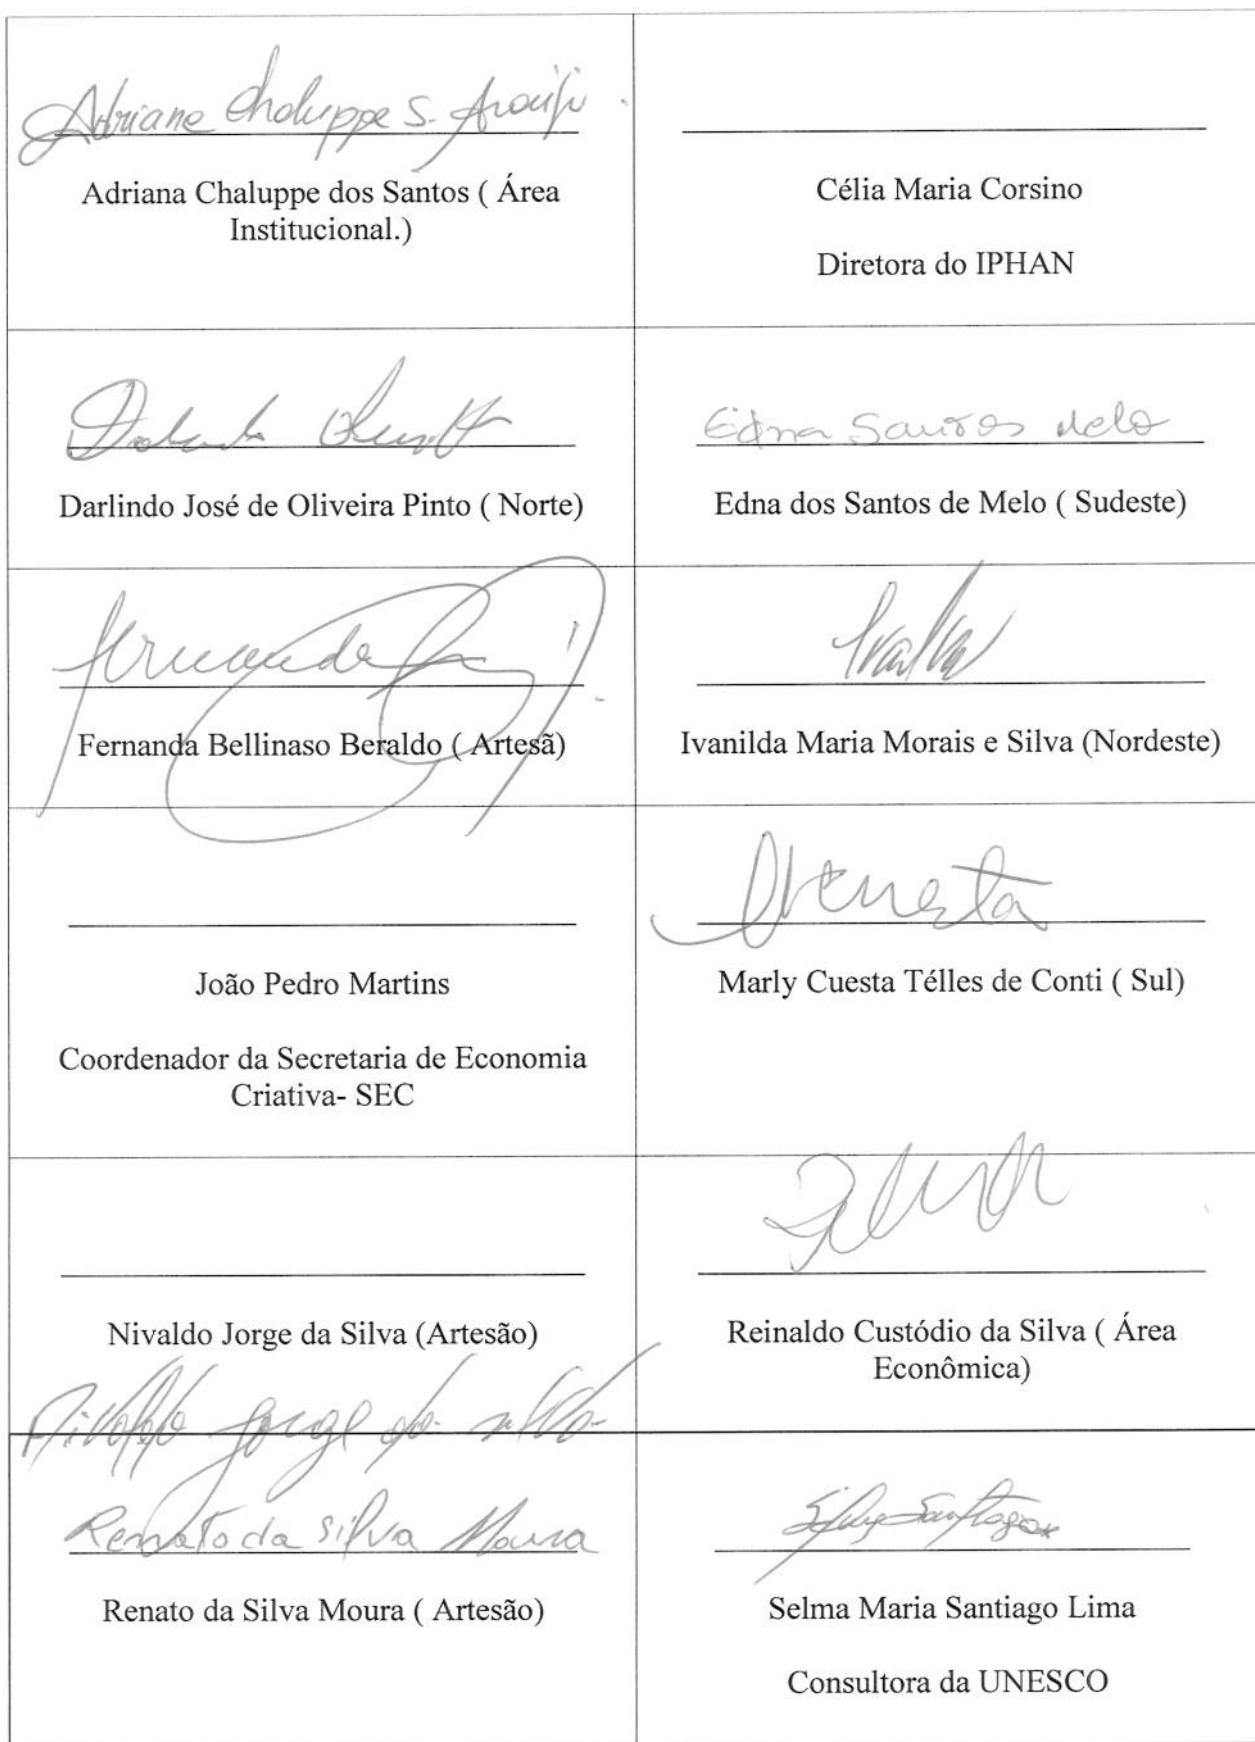 Adriane Chaluppe S. Araújo
Adriana Chaluppe dos Santos ( Área
Institucional.)
Célia Maria Corsino
Diretora do IPHAN
Darlindo José de Oliveira Pinto ( Norte)
Edna Santos Melo
Edna dos Santos de Melo ( Sudeste)
Fernanda
Fernanda Bellinaso Beraldo ( Artesã)
Ivanilda Maria Morais e Silva (Nordeste)
João Pedro Martins
Coordenador da Secretaria de Economia
Criativa- SEC
Marly Cuesta Télles de Conti ( Sul)
Nivaldo Jorge da Silva (Artesão)
Nivaldo Jorge da Silva
Reinaldo Custódio da Silva ( Área
Econômica)
Renato da Silva Moura
Renato da Silva Moura ( Artesão)
Selma Maria Santiago Lima
Consultora da UNESCO